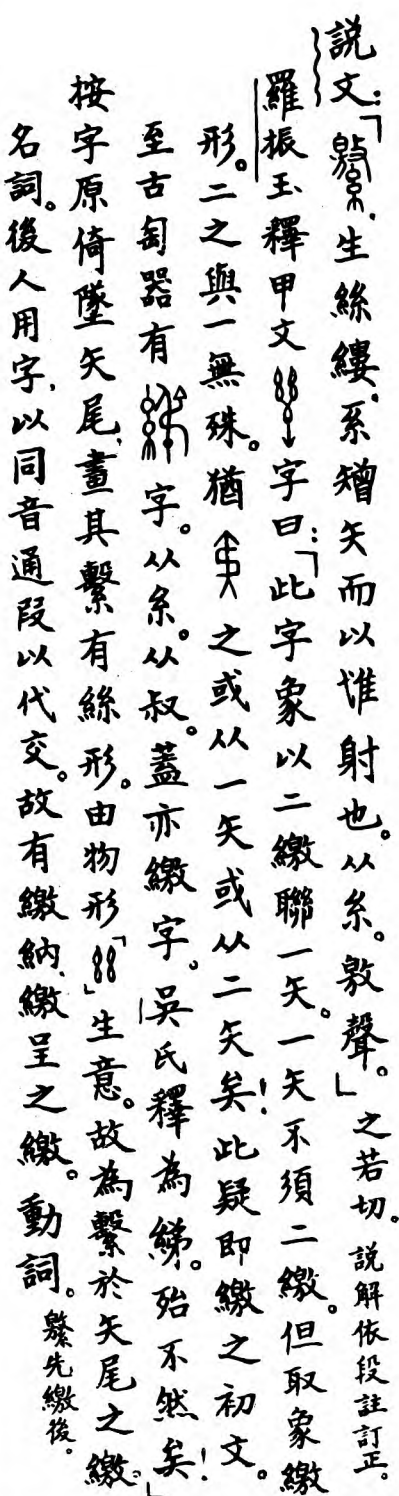 説文：「繁，生絲縷。系矰矢而以惟射也。从糸。敫聲。」之若切。説解依段註訂正。
羅振玉釋甲文字曰：「此字象以二繳聯一矢。一矢不須二繳。但取象繳
形。二之與一無殊。猶之或从一矢或从二矢矣！此疑即繳之初文。
至古匋器有字。从糸。从叔。蓋亦繳字。吳氏釋為綈。殆不然矣！」
按字原倚墜矢尾，畫其繫有絲形。由物形「」生意。故為繫於矢尾之繳。
名詞。後人用字，以同音通叚以代交。故有繳納、繳呈之繳。動詞。繁先繳後。